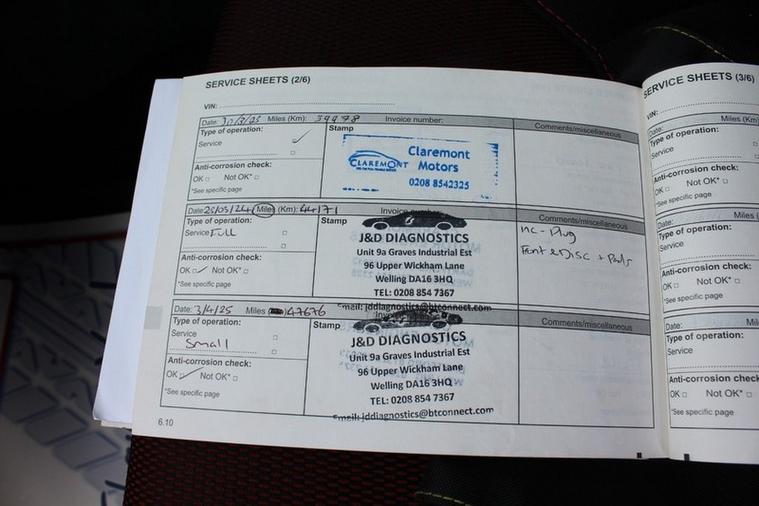 SERVICE SHEETS (2/6)
VIN:
Date: Miles (Km): 39978 Invoice number:
Type of operation: Stamp Comments/miscellaneous
Service
Anti-corrosion check:
OK Not OK*
*See specific page
CLAREMONT
Claremont
Motors
0208 8542325
Date: Miles (Km): 44171 Invoice number
Type of operation: Stamp Comments/miscellaneous
Service Full
Anti-corrosion check:
OK Not OK*
*See specific page
J&D DIAGNOSTICS
Unit 9a Graves Industrial Est
96 Upper Wickham Lane
Welling DA16 3HQ
TEL: 0208 854 7367
Email: jddiagnostics@btconnect.com
inc - Plug
Disc + Pads
Date: 3/4/25 Miles 47676
Type of operation: Stamp Comments/miscellaneous
Service
Small
Anti-corrosion check:
OK Not OK*
*See specific page
J&D DIAGNOSTICS
Unit 9a Graves Industrial Est
96 Upper Wickham Lane
Welling DA16 3HQ
TEL: 0208 854 7367
Email: jddiagnostics@btconnect.com
6.10
SERVICE SHEETS (3/6)
VIN:
Date: Miles
Type of operation:
Service
Anti-corrosion check:
OK Not OK*
*See specific page
Date: Miles
Type of operation:
Service
Anti-corrosion check:
OK Not OK*
*See specific page
Date: Miles
Type of operation:
Service
Anti-corrosion check
OK Not OK*
*See specific page